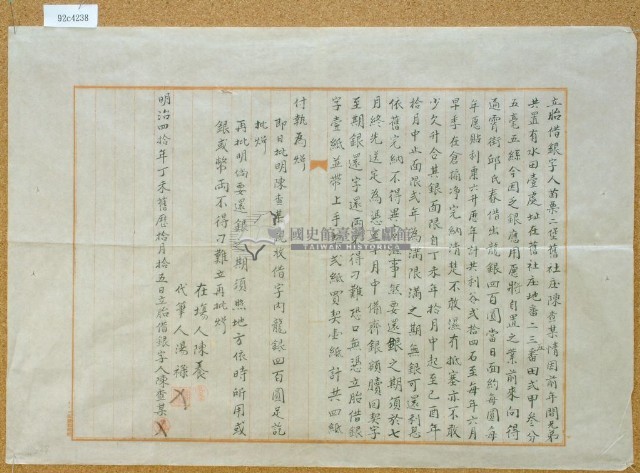 92c4238
立胎借銀字人苗栗二堡舊社庄陳查某情因前年間兄弟
共置有水田壹處址在舊社庄地番二三五番田弍甲叄分
五毫五絲今因乏銀應用愿將自置之業前來向得
通霄街邱氏春借出龍銀四百圓當日面約每圓每
年愿貼利粟六升歷年計共利谷弍拾四石至每年六月
早季在倉搧淨完納清楚不敢濕有抵塞亦不敢
少欠升合其銀面限自丁未年拾月中起至己酉年
拾月中止面限弍年為滿限滿之期無銀可還利息
依舊完納不得異言滋事然要還銀之期須於七
月終先送定為憑至十月中備齊銀額贖回契字
至期銀還字還兩不得刁難恐口無憑立胎借銀
字壹紙並帶上手契弍紙買契壹紙計共四紙
付執為炤
即日批明陳查某收借字內龍銀四百圓足訖
批炤
再批明倘要還銀之期須照地方依時所用或
銀或幣兩不得刁難立再批炤
在塲人陳養
代筆人湯祿
明治四拾年丁未舊歷拾月拾五日立胎借銀字人陳查某
國史館臺灣文獻館
TAIWAN HISTORICA